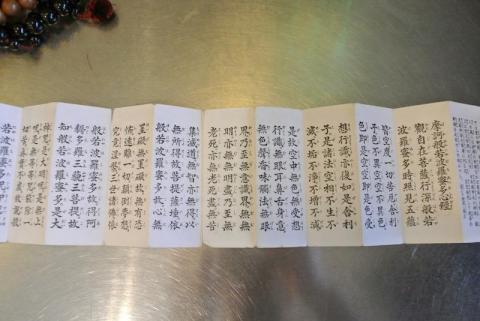 摩訶般若波羅蜜多心經
觀自在菩薩行深般若
波羅蜜多時照見五蘊
皆空度一切苦厄舍利
子色不異空空不異色
色即是空空即是色受
想行識亦復如是舍利
子是諸法空相不生不
滅不垢不淨不增不減
是故空中無色無受想
行識無眼耳鼻舌身意
無色聲香味觸法無眼
界乃至無意識界無無
明亦無無明盡乃至無
老死亦無老死盡無苦
集滅道無智亦無得以
無所得故菩提薩埵依
般若波羅蜜多故心無
罣礙無罣礙故無有恐
怖遠離一切顛倒夢想
究竟涅槃三世諸佛依
般若波羅蜜多故得阿
耨多羅三藐三菩提故
知般若波羅蜜多是大
神咒是大明咒是無上
咒是無等等咒能除一
切苦真實不虛故說般
若波羅蜜多咒